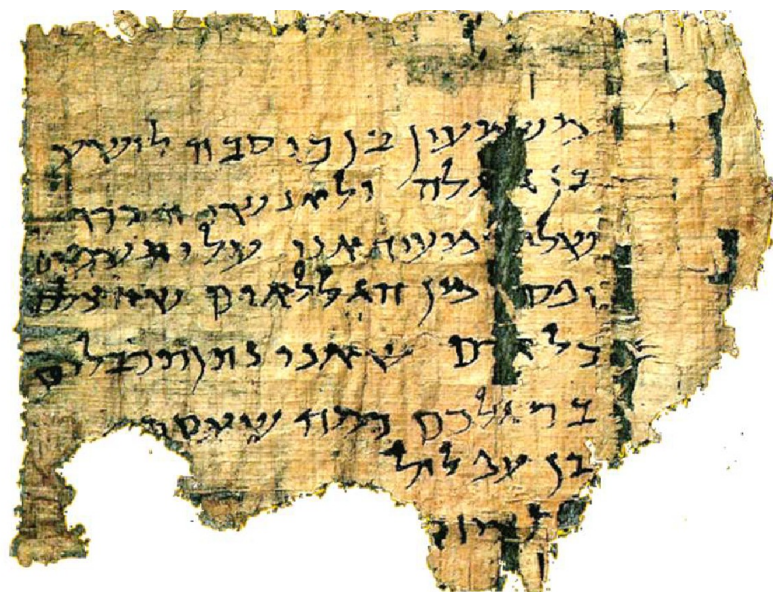 משמעון בן כוסבה לישע
ולאנשי הכרך
מעיד אני עלי תשמים
מן הגללאים שהצלכם
כל אדם שאני נותן תכבלים
ברגלכם כמה שעסתי
בן עפלול